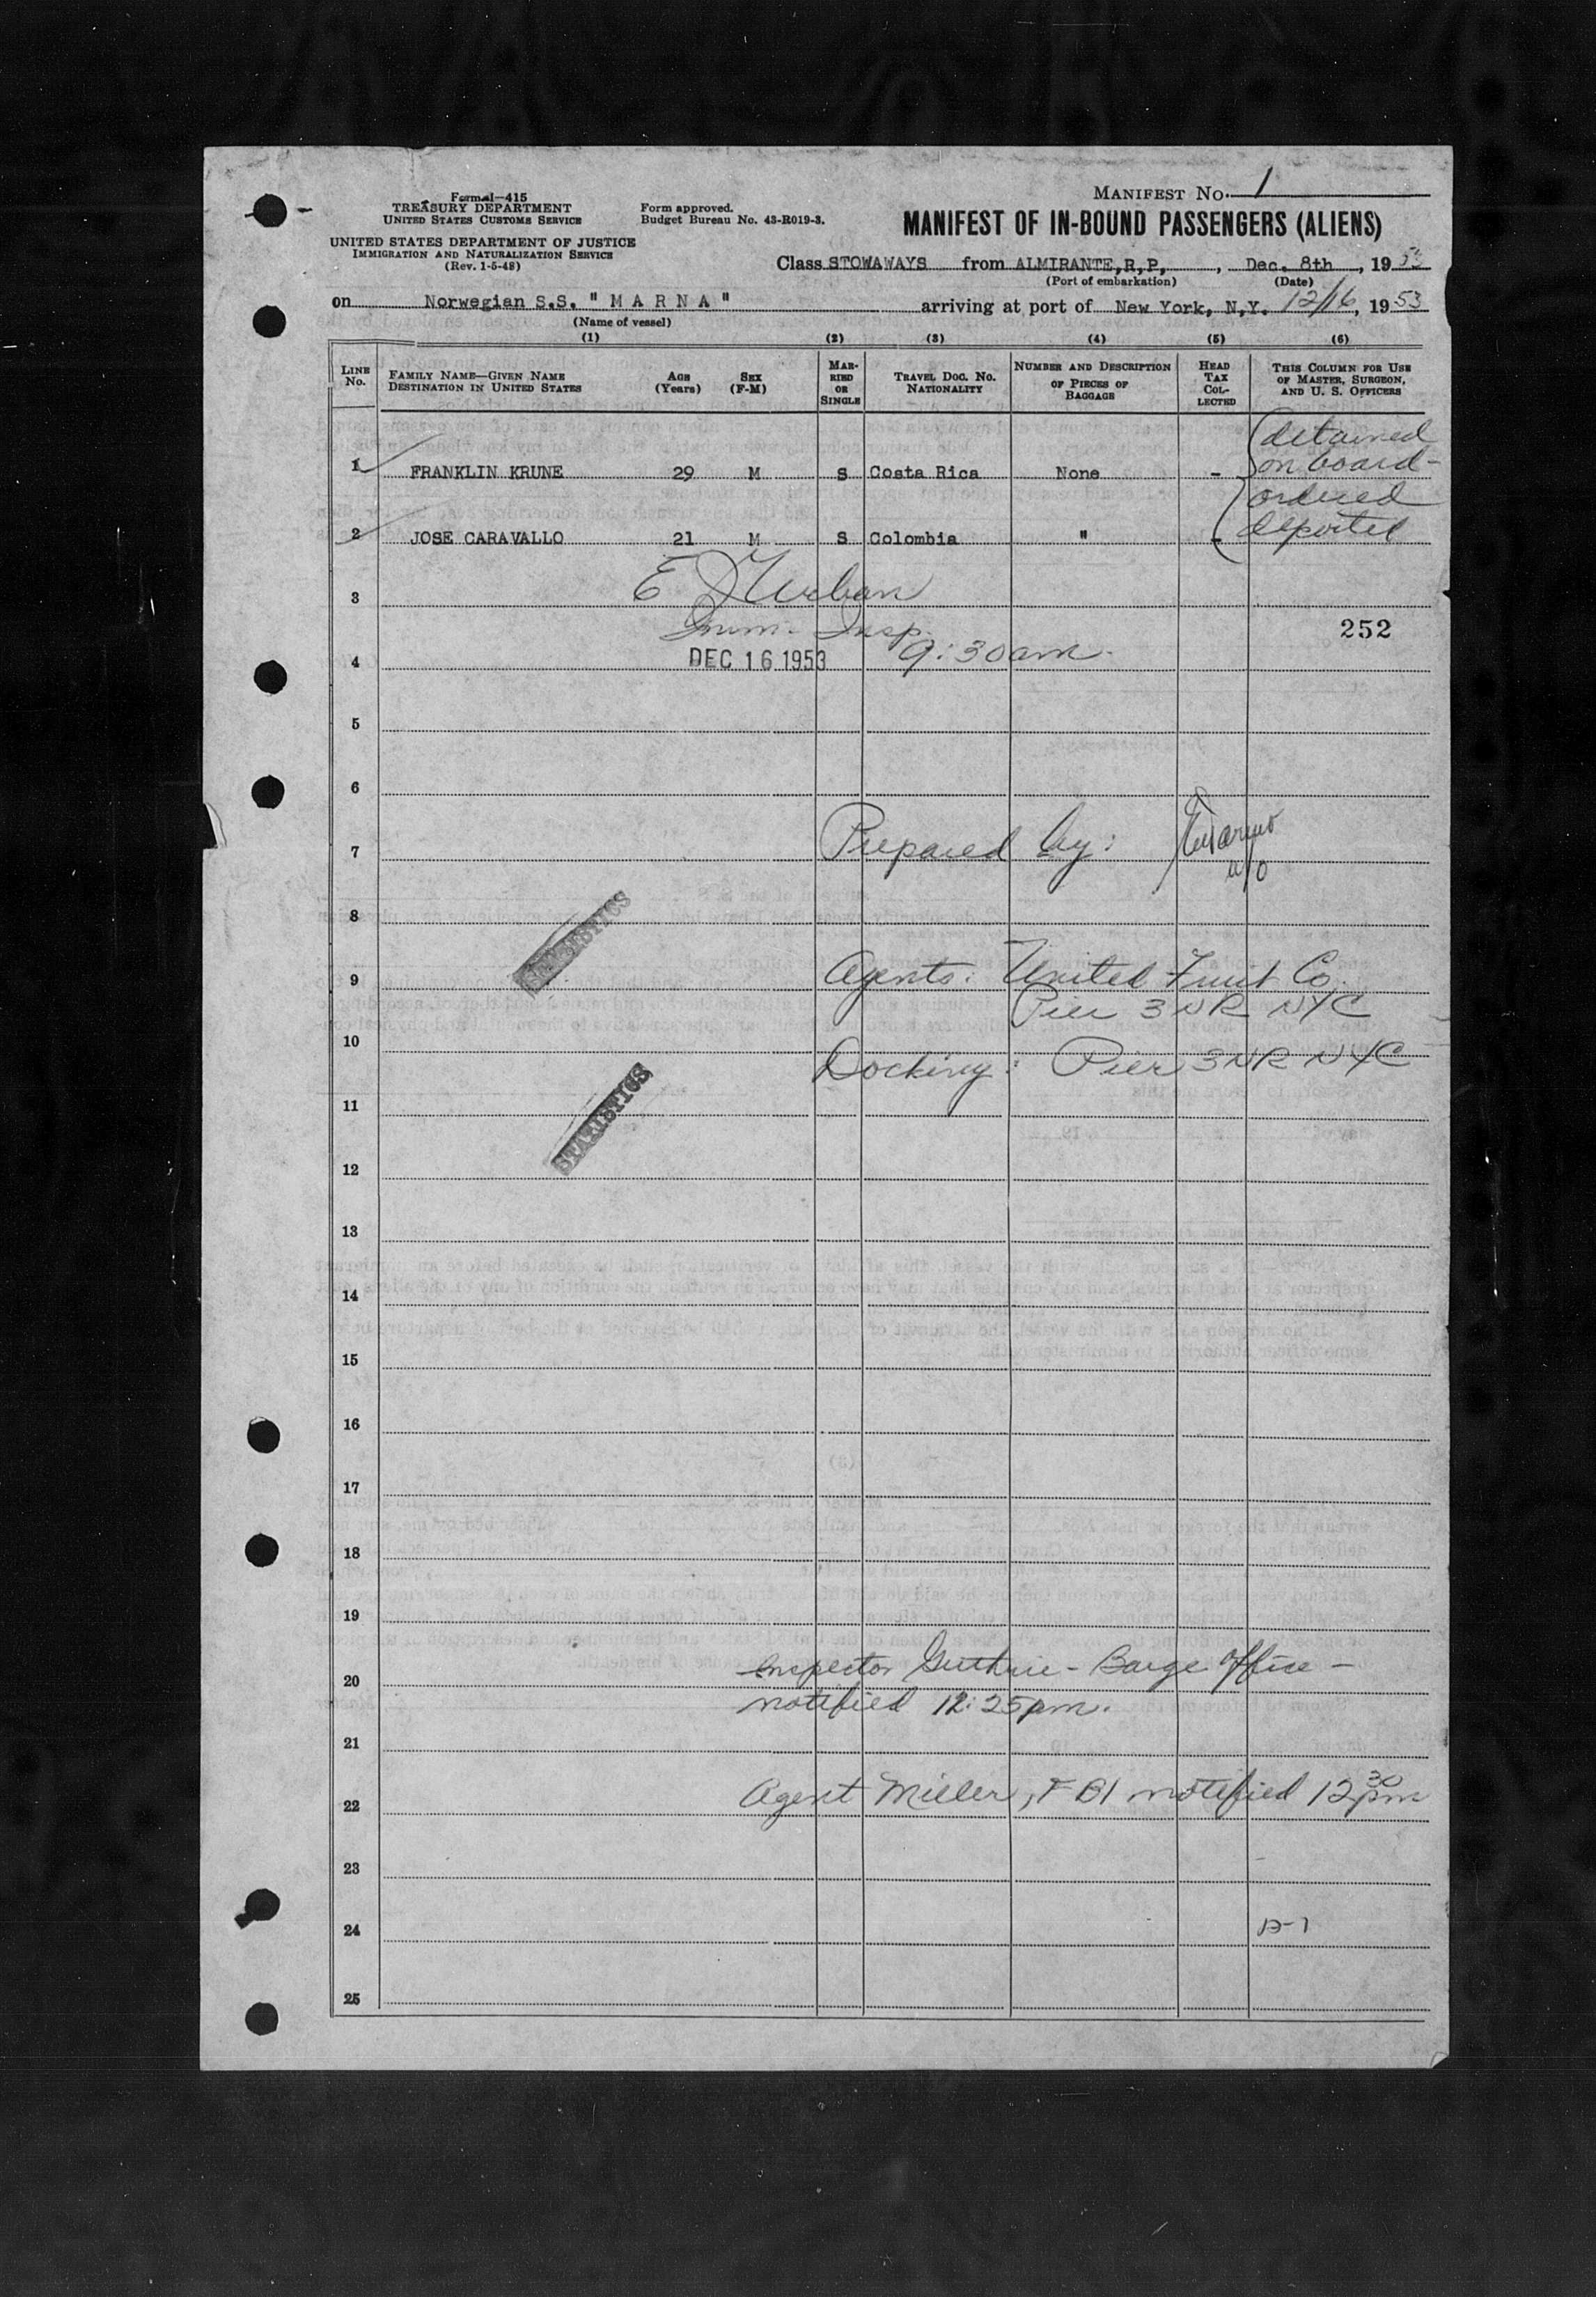 MANIFEST NO. 1
Form I-415
TREASURY DEPARTMENT
UNITED STATES CUSTOMS SERVICE
Form approved.
Budget Bureau No. 43-R019-3.
MANIFEST OF IN-BOUND PASSENGERS (ALIENS)
UNITED STATES DEPARTMENT OF JUSTICE
IMMIGRATION AND NATURALIZATION SERVICE
(Rev. 1-5-48)
Class STOWAWAYS from ALMIRANTE,R,P, , Dec. 8th , 19 53
(Port of embarkation) (Date)
on Norwegian S.S. " M A R N A " arriving at port of New York, N.Y. 12/16, 19 53
(Name of vessel)
(1) (2) (3) (4) (5) (6)
LINE No. FAMILY NAME—GIVEN NAME DESTINATION IN UNITED STATES AGE (Years) SEX (F-M) MARRIED OR SINGLE TRAVEL DOC. NO. NATIONALITY NUMBER AND DESCRIPTION OF PIECES OF BAGGAGE HEAD TAX COLLECTED THIS COLUMN FOR USE OF MASTER, SURGEON, AND U. S. OFFICERS
detained
1 FRANKLIN KRUNE 29 M S Costa Rica None - on board -
ordered
2 JOSE CARAVALLO 21 M S Colombia " - deported
3 E Urban
Imm. Insp.
252
4 DEC 16 1953 9:30am.
5
6
7 Prepared by:
8
STATISTICS
9 Agents: United Fruit Co.
Pier 3 NR NYC
10
Docking: Pier 3 NR NYC
11
STATISTICS
12
13
14
15
16
17
18
19
20 Inspector Guthrie - Barge Office -
notified 12:25pm.
21
22 Agent Miller, FBI notified 12 30 pm
23
24
25